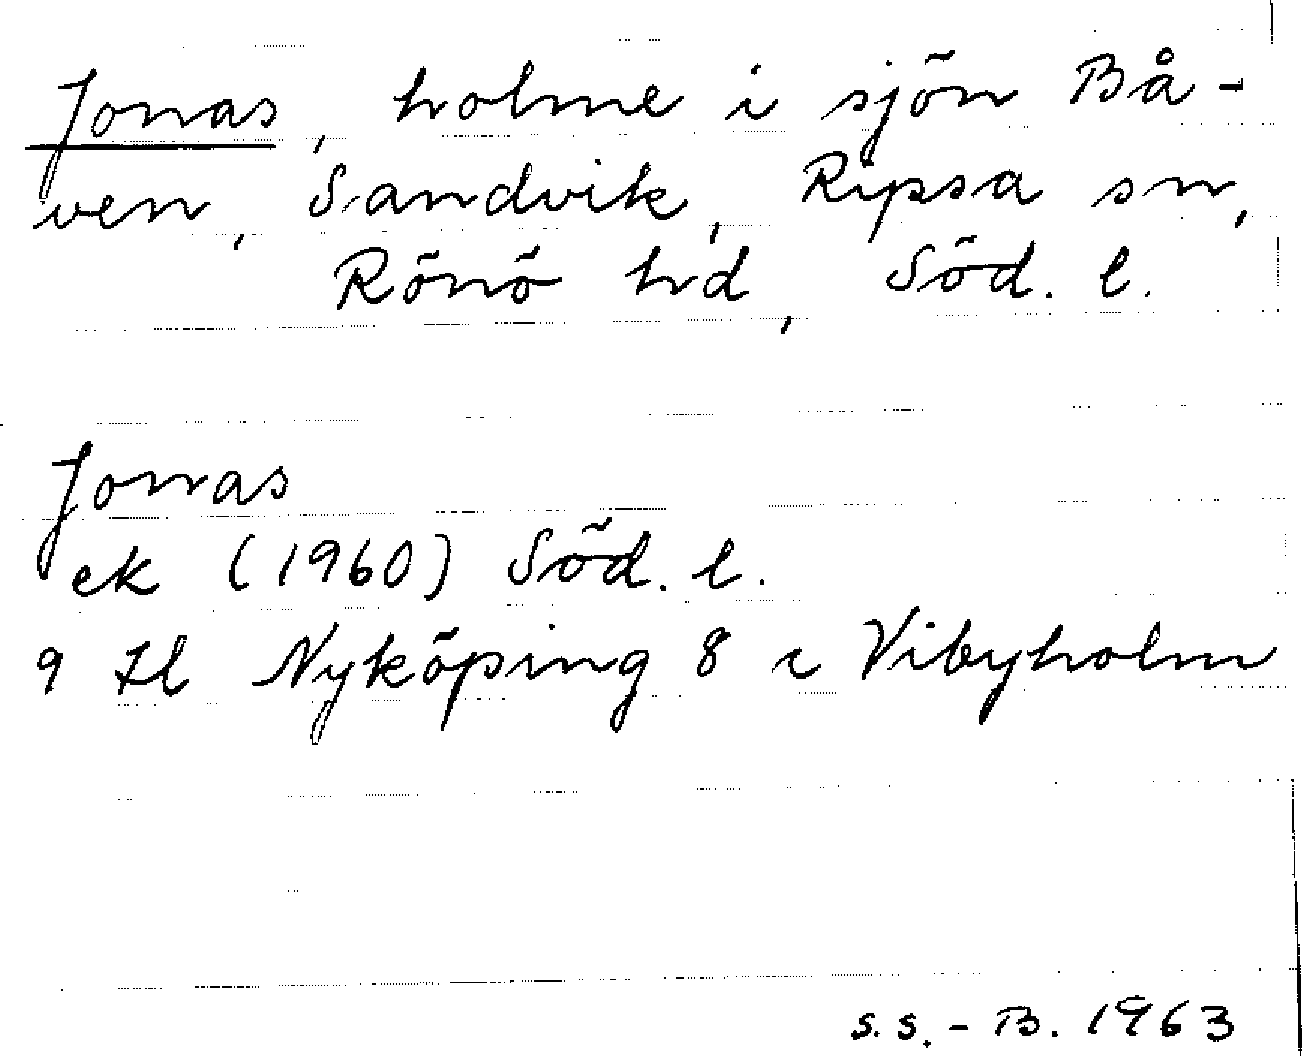 Jonas, holme i sjön Bå-
ven, Sandvik, Ripsa sn,
Rönö hd, Söd. l.
Jonas
ek (1960) Söd. l.
9 H Nyköping 8 c Vibyholm
s.s.-B. 1963